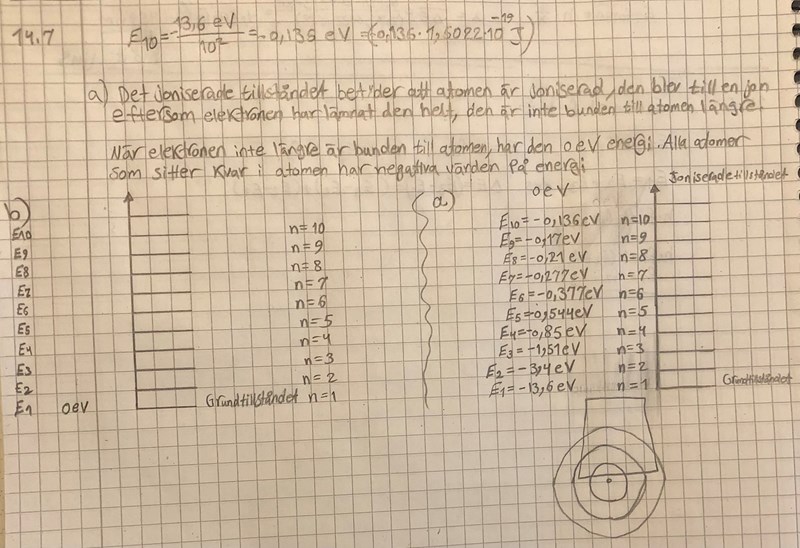 14.7
E10 = -13,6 eV / 10² = -0,136 eV = (-0,136 · 1,6022 · 10⁻¹⁹ J)
a) Det joniserade tillståndet betyder att atomen är joniserad, den blev till en jon
eftersom elektronen har lämnat den helt, den är inte bunden till atomen längre.
När elektronen inte längre är bunden till atomen, har den 0 eV energi. Alla atomer
som sitter kvar i atomen har negativa värden på energi
b)
E10 n=10
E9 n=9
E8 n=8
E7 n=7
E6 n=6
E5 n=5
E4 n=4
E3 n=3
E2 n=2
E1 0eV Grundtillståndet n=1
a) 0eV Joniserade tillståndet
E10 = -0,136 eV n=10
E9 = -0,17 eV n=9
E8 = -0,21 eV n=8
E7 = -0,277 eV n=7
E6 = -0,377 eV n=6
E5 = -0,544 eV n=5
E4 = -0,85 eV n=4
E3 = -1,51 eV n=3
E2 = -3,4 eV n=2
E1 = -13,6 eV n=1 Grundtillståndet